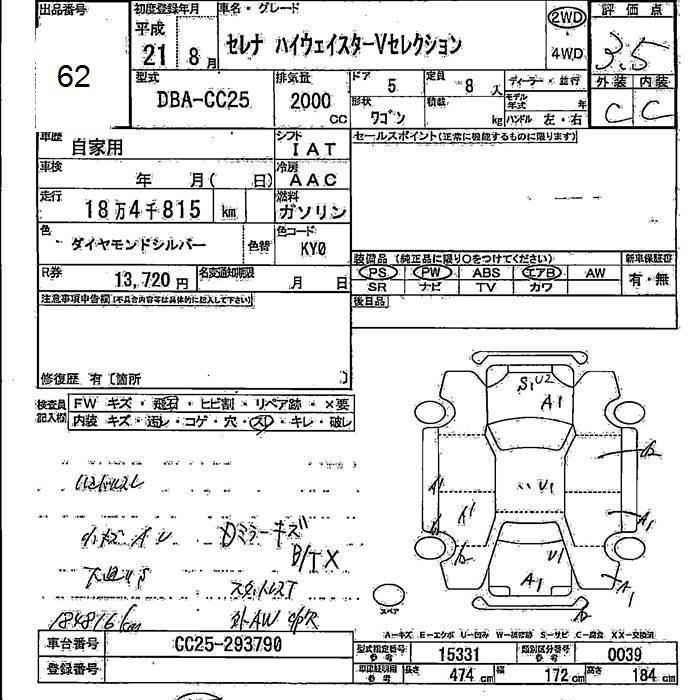 出品番号
62
初度登録年月
平成
21 8 月
車名・グレード
セレナ ハイウェイスターVセレクション
2WD
4WD
評価点
3.5
外装 内装
C C
型式
DBA-CC25
排気量
2000 CC
ドア 5
定員 8 人
形状 ワゴン
積載 kg
ディーラー・並行
モデル年式 年
ハンドル 左・右
車歴 自家用
シフト IAT
セールスポイント(正常に機能するものに限ります)
車検 年 月( 日)
冷房 AAC
走行 18万4千815 km
燃料 ガソリン
色 ダイヤモンドシルバー 色替
色コード KY0
R券 13,720円
名変通知期限 月 日
装備品 (純正品に限り○をつけてください)
新車保証書
PS PW ABS エアB AW
有・無
SR ナビ TV カワ
後日品
注意事項申告欄(不具合内容等は具体的に記入して下さい)
修復歴 有 [箇所 ]
検査員記入欄
FW キズ・飛石・ヒビ割・リペア跡・×要
内装 キズ・汚レ・コゲ・穴・スレ・キレ・破レ
Dミラーキズ
B/TX
184816km
外AW
S1 U2
A1
U1
A1
U1
A1
A1
スペア
A-キズ E-エクボ U-凹み W-補修跡 S-サビ C-腐食 XX-交換済
車台番号 CC25-293790
登録番号
型式指定番号 参考 15331
類別区分番号 参考 0039
車庫証明用 参考
長さ 474 cm
幅 172 cm
高さ 184 cm